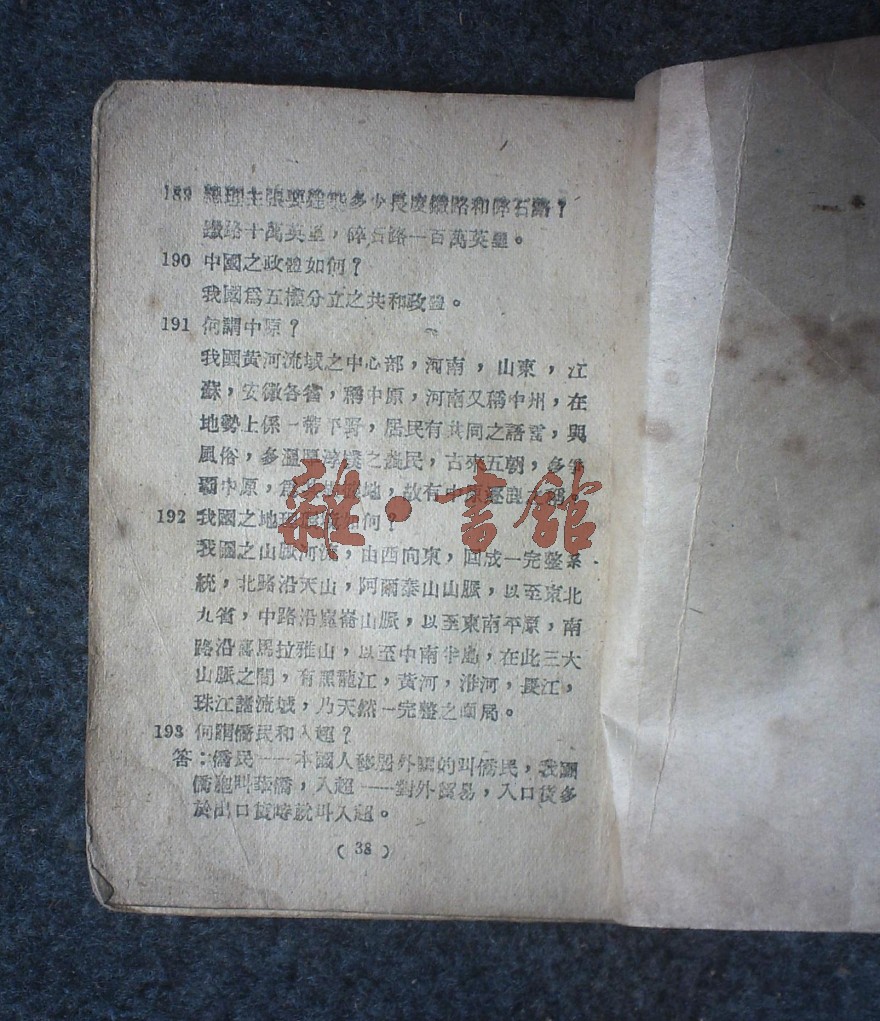 189 總理主張要建築多少長度鐵路和碎石路？
鐵路十萬英里，碎石路一百萬英里。
190 中國之政體如何？
我國爲五權分立之共和政體。
191 何謂中原？
我國黃河流域之中心部，河南，山東，江
蘇，安徽各省，稱中原，河南又稱中州，在
地勢上係一帶平野，居民有共同之語言，與
風俗，多溫厚淳樸之農民，古來五朝，多爭
霸中原，爲 地，故有中原逐鹿之
192 我國之地理 如何？
我國之山脈河流，由西向東，回成一完整系
統，北路沿天山，阿爾泰山山脈，以至東北
九省，中路沿崑崙山脈，以至東南平原，南
路沿喜馬拉雅山，以至中南半島，在此三大
山脈之間，有黑龍江，黃河，淮河，長江，
珠江諸流域，乃天然一完整之局。
193 何謂僑民和入超？
答：僑民——本國人移居外國的叫僑民，我國
僑胞叫華僑，入超——對外貿易，入口貨多
於出口貨時就叫入超。
（38）
雜·書館